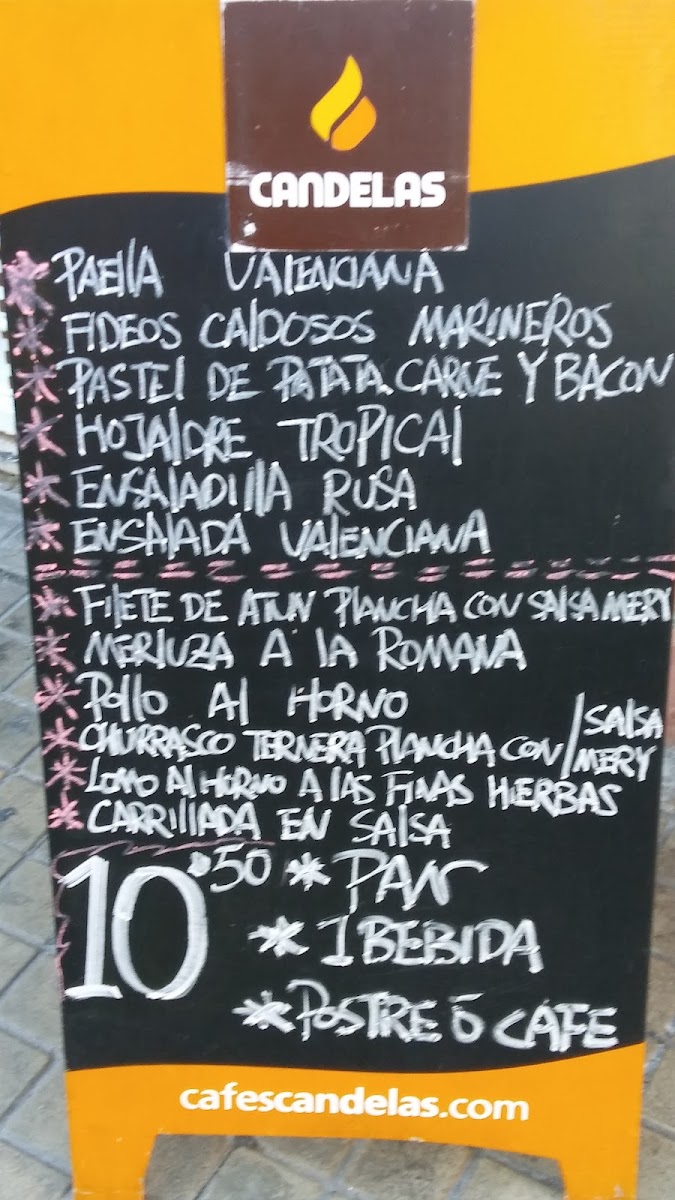 CANDELAS
* PAEllA VALENCIANA
* FIDEOS CALDOSOS MARINEROS
* PASTEL DE PATATA CARNE Y BACON
* HOJALDRE TROPICAL
* ENSALADILLA RUSA
* ENSALADA VALENCIANA
* FILETE DE ATUN PLANCHA CON SALSA MERY
* MERLUZA A LA ROMANA
* POLLO AL HORNO
* CHURRASCO TERNERA PLANCHA CON / SALSA MERY
* LOMO AL HORNO A LAS FINAS HIERBAS
* CARRILLADA EN SALSA
10'50 * PAN
* 1 BEBIDA
* POSTRE Ó CAFE
cafescandelas.com